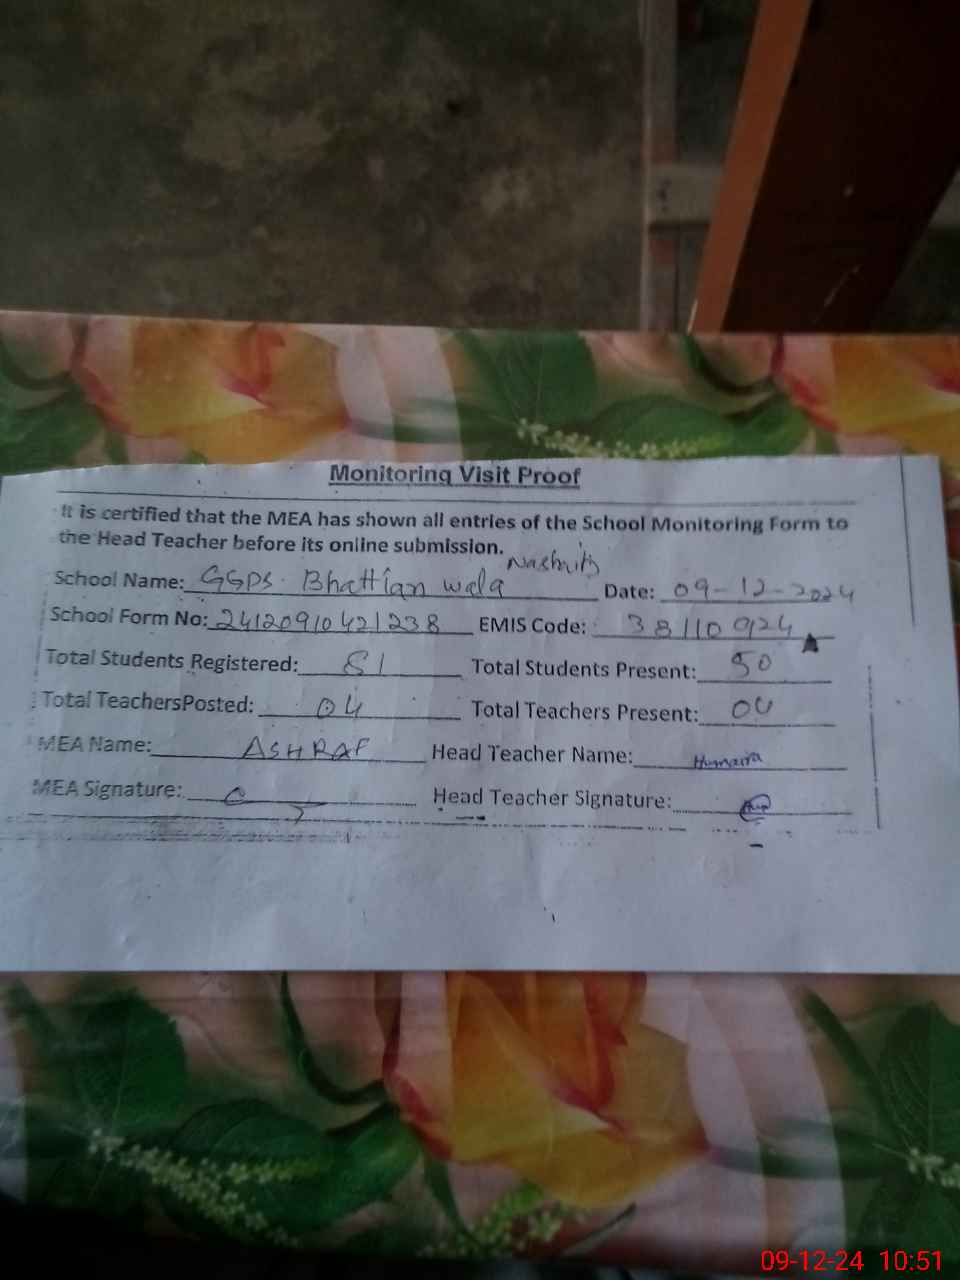 Monitoring Visit Proof
It is certified that the MEA has shown all entries of the School Monitoring Form to
the Head Teacher before its online submission.
School Name: GGPS Bhattian wala Date: 09-12-2024
School Form No: 24120910421238 EMIS Code: 38110924
Total Students Registered: 81 Total Students Present: 50
Total TeachersPosted: 04 Total Teachers Present: 04
MEA Name: ASHRAF Head Teacher Name: Humaira
MEA Signature: Head Teacher Signature:
09-12-24 10:51